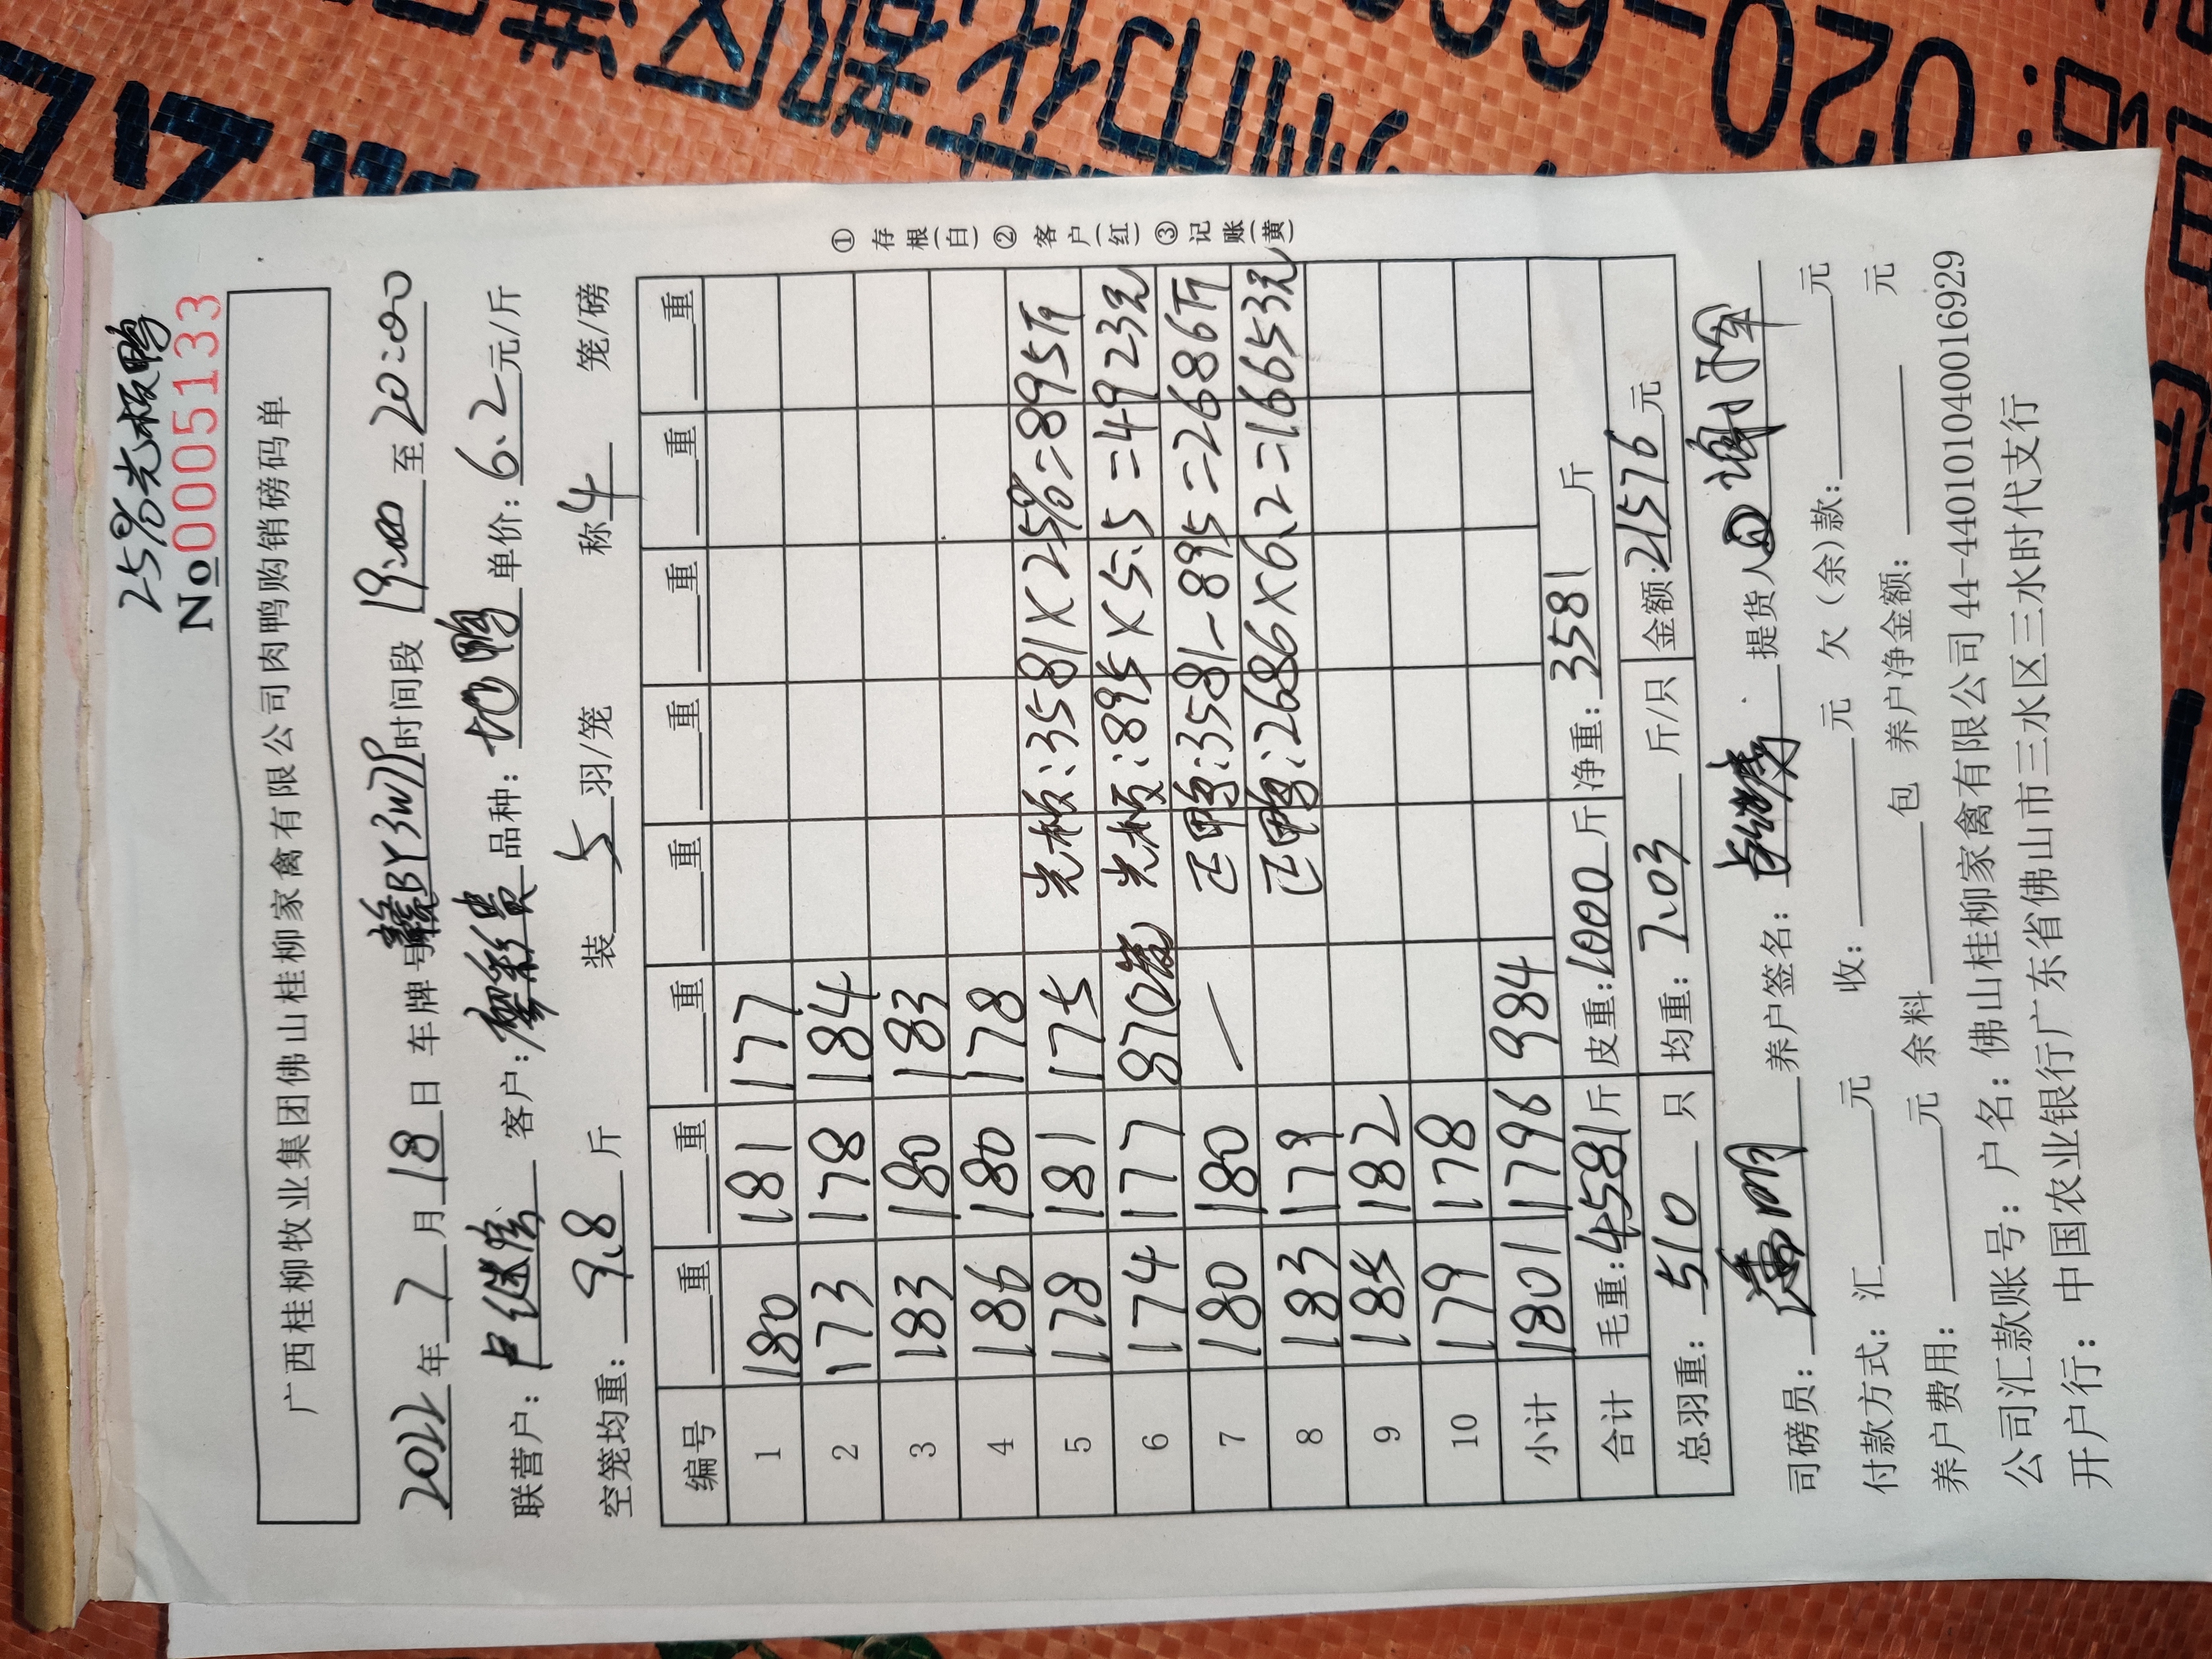 25%光板鸭
No 0005133
广西桂柳牧业集团佛山桂柳家禽有限公司肉鸭购销磅码单
2022年7月18日 车牌号 BY3W7P 时间段 19:00 至 20:00
联营户: 客户:廖彩贵 品种:地鸭 单价:6.2元/斤
空笼均重: 9.8 斤 装 5 羽/笼 称 4 笼/磅
编号 重 重 重 重 重 重 重 重
1 180 181 177
2 173 178 184
3 183 180 183
4 186 180 178
5 178 181 175 光板:3581×25%=895斤
6 174 177 87 光板:895×5.5=4923元
7 180 180 — 正鸭:3581-895=2686斤
8 183 179 正鸭:2686×6.2=16653元
9 185 182
10 179 178
小计 1801 1796 984
合计 毛重:4581斤 皮重:1000斤 净重:3581斤
总羽重: 510 只 均重: 7.03 斤/只 金额:21576元
①存根(白)②客户(红)③记账(黄)
司磅员: 养户签名: 提货人
付款方式:汇 元 收: 元 欠(余)款: 元
养户费用: 元 余料 包 养户净金额: 元
公司汇款账号:户名:佛山桂柳家禽有限公司 44-440101040016929
开户行:中国农业银行广东省佛山市三水区三水时代支行